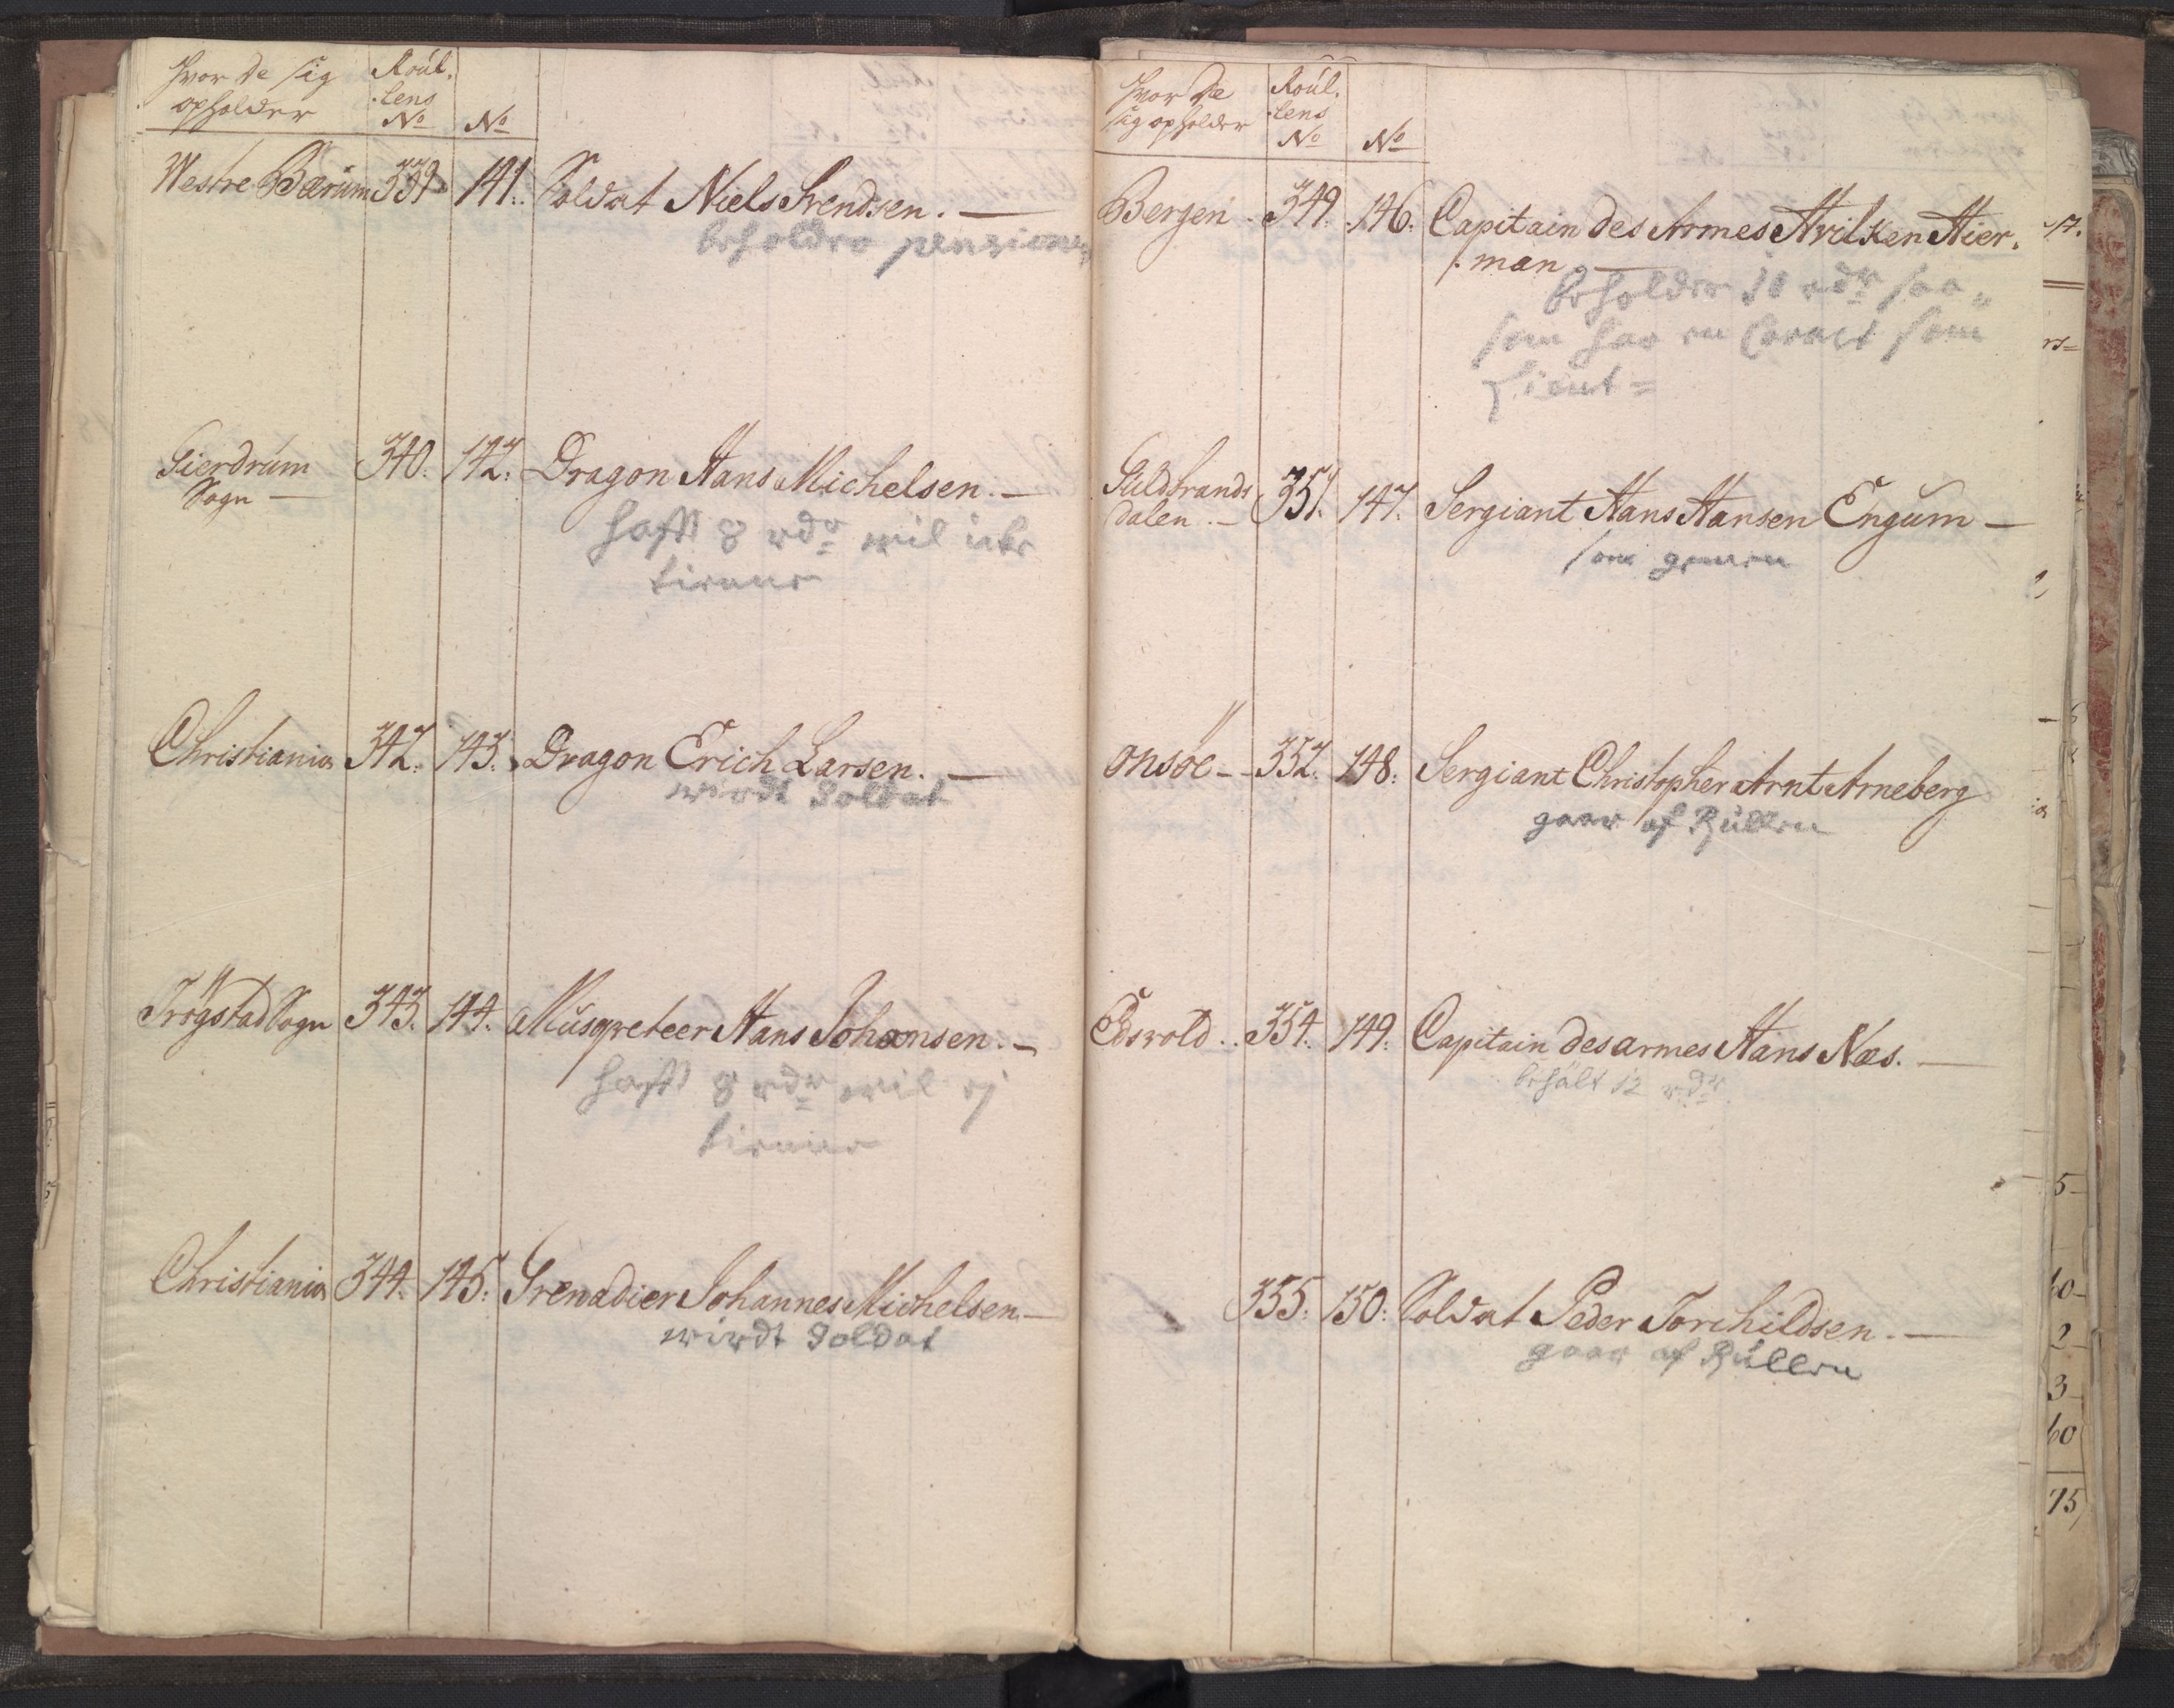 Hvor de sig
opholder
Roúl.
:lens
No
No
Westre Bærúm 339 141. Soldat Niels Svendsen. —
beholder pensionen
Gierdrúm 340. 142. Dragon Hans Michelsen. —
Sogn —
hafft 8 rdr wil icke
tienne
Christiania 342. 143. Dragon Erich Larsen. —
wirdt Soldat
Trögstad Sogn 343. 144. Músqveteer Hans Johansen. —
hafft 8 rdr wil ej
tienne
Christiania 344. 145. Grenadier Johannes Michelsen. —
wirdt Soldat
Hvor de
sig opholder
Roúl.
:lens
No
No
Bergen. 349. 146. Capitain des Armes Hvilken Hier.
:man —
beholder 18 rdr saa
som har en Caract som
Lieut=
Gúldbrands 351. 147. Sergiant Hans Hansen Engúm —
dalen. —
som gemeen
Onsöe - - 352. 148. Sergiant Christopher Arnt Arneberg
gaar af Rúllen
Edsvold.. 354. 149. Capitain des armes Hans Næs. —
behält 12 rdr
355. 150. Soldat Peder Torchildsen. —
gaar af Rúllen
5-
60-
2-
3-
60
75